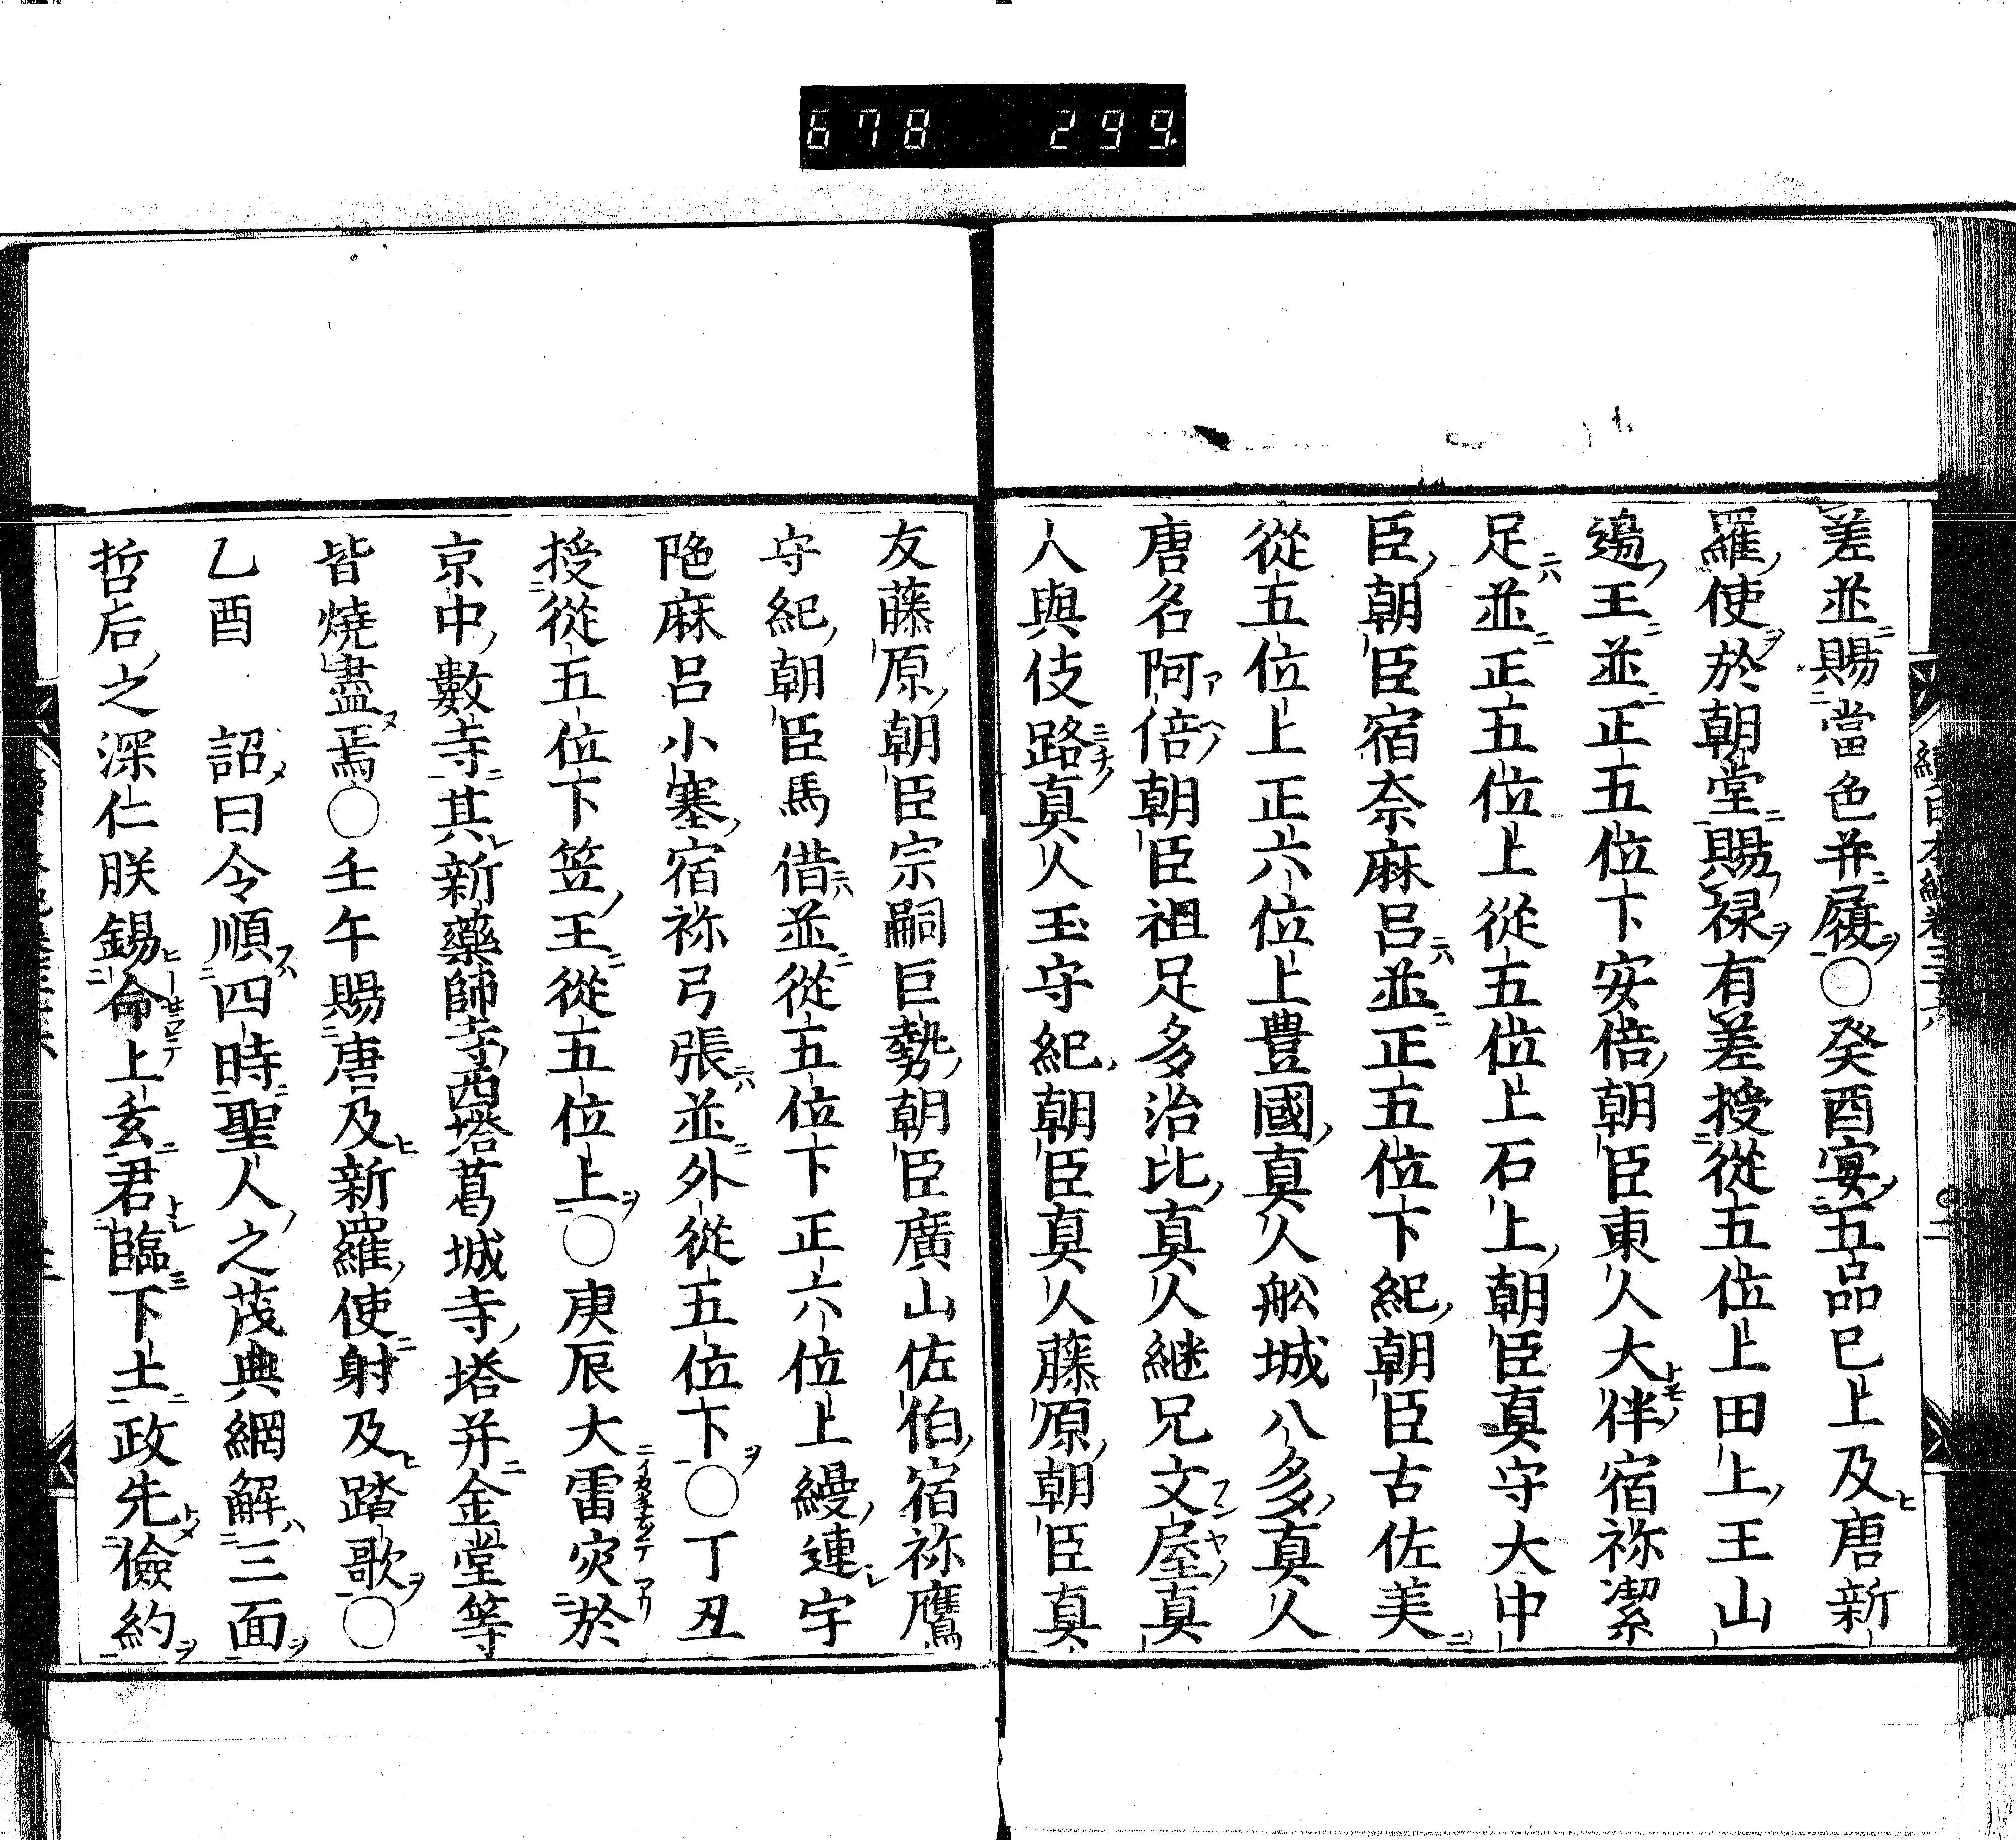 678 299
差並賜當色并履○癸酉宴五品已上及唐新
羅使於朝堂賜禄有差授從五位上田上王山
邊王並正五位下安倍朝臣東人大伴宿祢潔
足並正五位上從五位上石上朝臣真守大中
臣朝臣宿奈麻呂並正五位下紀朝臣古佐美
從五位上正六位上豊國真人舩城八多真人
唐名阿倍朝臣祖足多治比真人継兄文屋真
人與伎路真人玉守紀朝臣真人藤原朝臣真
友藤原朝臣宗嗣巨勢朝臣廣山佐伯宿祢鷹
守紀朝臣馬借並從五位下正六位上縵連宇
陁麻呂小塞宿祢弓張並外從五位下○丁丑
授從五位下笠王從五位上○庚辰大雷灾於
京中數寺其新藥師寺西塔葛城寺塔并金堂等
皆燒盡焉○壬午賜唐及新羅使射及踏歌○
乙酉　詔曰令順四時聖人之茂典網解三面
哲后之深仁朕錫命上玄君臨下土政先儉約